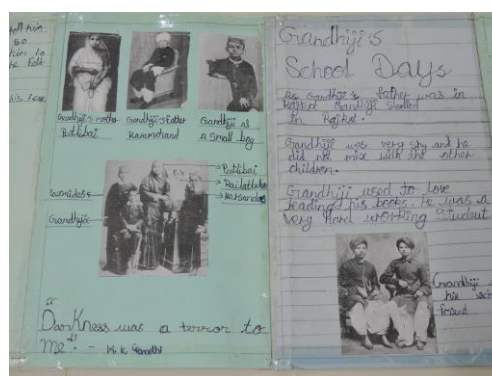 tell him
so
him to
he felt
his fear
Gandhiji's mother
Putlibai
Gandhiji's father
Karamchand
Gandhiji as
a small boy
Putlibai
Karsandas
Gandhiji
"Darkness was a terror to
me". - M.K. Gandhi
Gandhiji's
School Days
As Gandhiji's father was in
Rajkot Gandhiji studied
in Rajkot.
Gandhiji was very shy and he
did not mix with the other
children.
Gandhiji used to love
reading his books. He was a
very hard working student
Gandhiji
his
friend